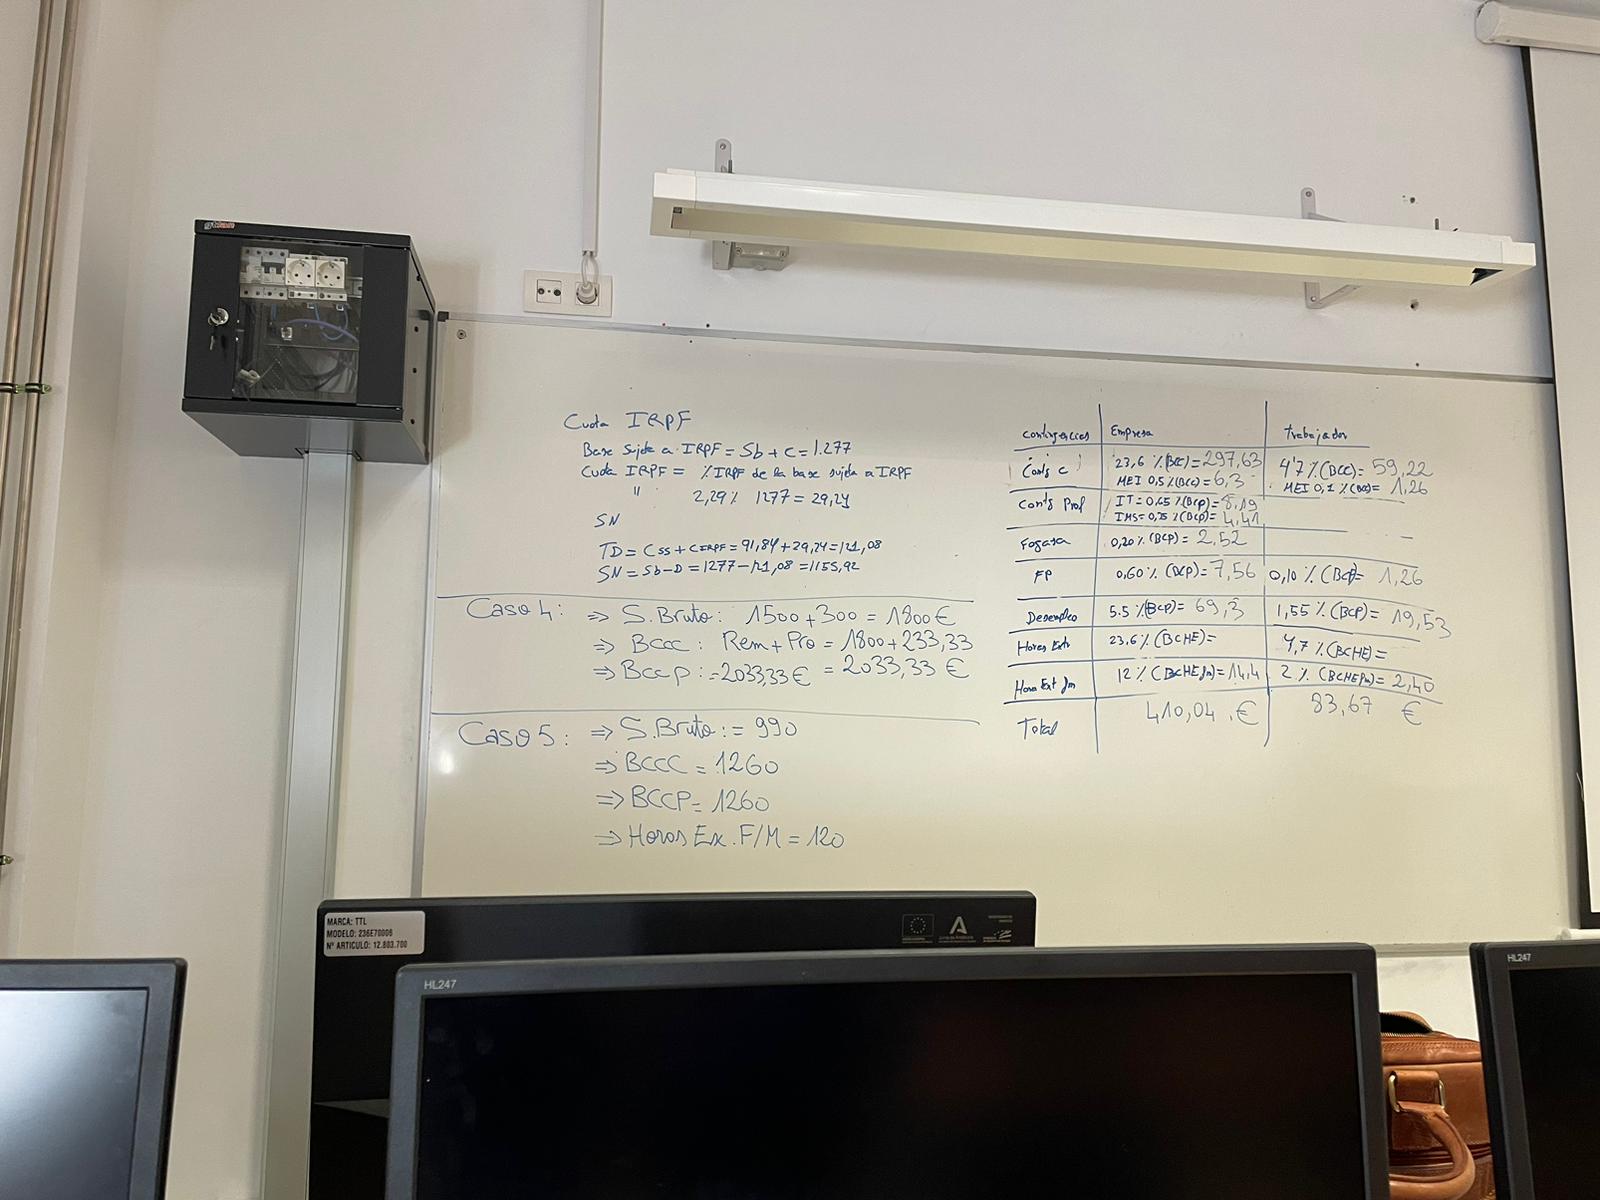 Cuota IRPF
Base sujeta a IRPF = Sb + C = 1.277
Cuota IRPF = % IRPF de la base sujeta a IRPF
" 2,29% 1277 = 29,24
SN
TD = Css + CIRPF = 91,84 + 29,24 = 121,08
SN = Sb - D = 1277 - 121,08 = 1155,92
Caso 4: ⇒ S. Bruto: 1500 + 300 = 1800 €
⇒ BCCC: Rem + Pro = 1800 + 233,33
⇒ BCCP: = 2033,33 € = 2033,33 €
Caso 5: ⇒ S. Bruto: = 990
⇒ BCCC = 1260
⇒ BCCP = 1260
⇒ Horas Ex. F/M = 120
Contingencias Empresa trabajador
Conts C 23,6 % (BCC) = 297,63 4'7 % (BCC) = 59,22
MEI 0,5 % (BCC) = 6,3 MEI 0,1 % (BCC) = 1,26
Conts Prof IT = 0,65 % (BCP) = 8,19
IMS = 0,35 % (BCP) = 4,41
Fogasa 0,20 % (BCP) = 2,52 —
FP 0,60 % (BCP) = 7,56 0,10 % (BCP) = 1,26
Desempleo 5.5 % (BCP) = 69,3 1,55 % (BCP) = 19,53
Horas Extr 23,6 % (BCHE) = 4,7 % (BCHE) =
Hora Ext fm 12 % (BCHEfm) = 14,4 2 % (BCHEfm) = 2,40
Total 410,04 € 83,67 €
MARCA: TTL
MODELO: 236E70006
Nº ARTICULO: 12.803.700
HL247
HL247